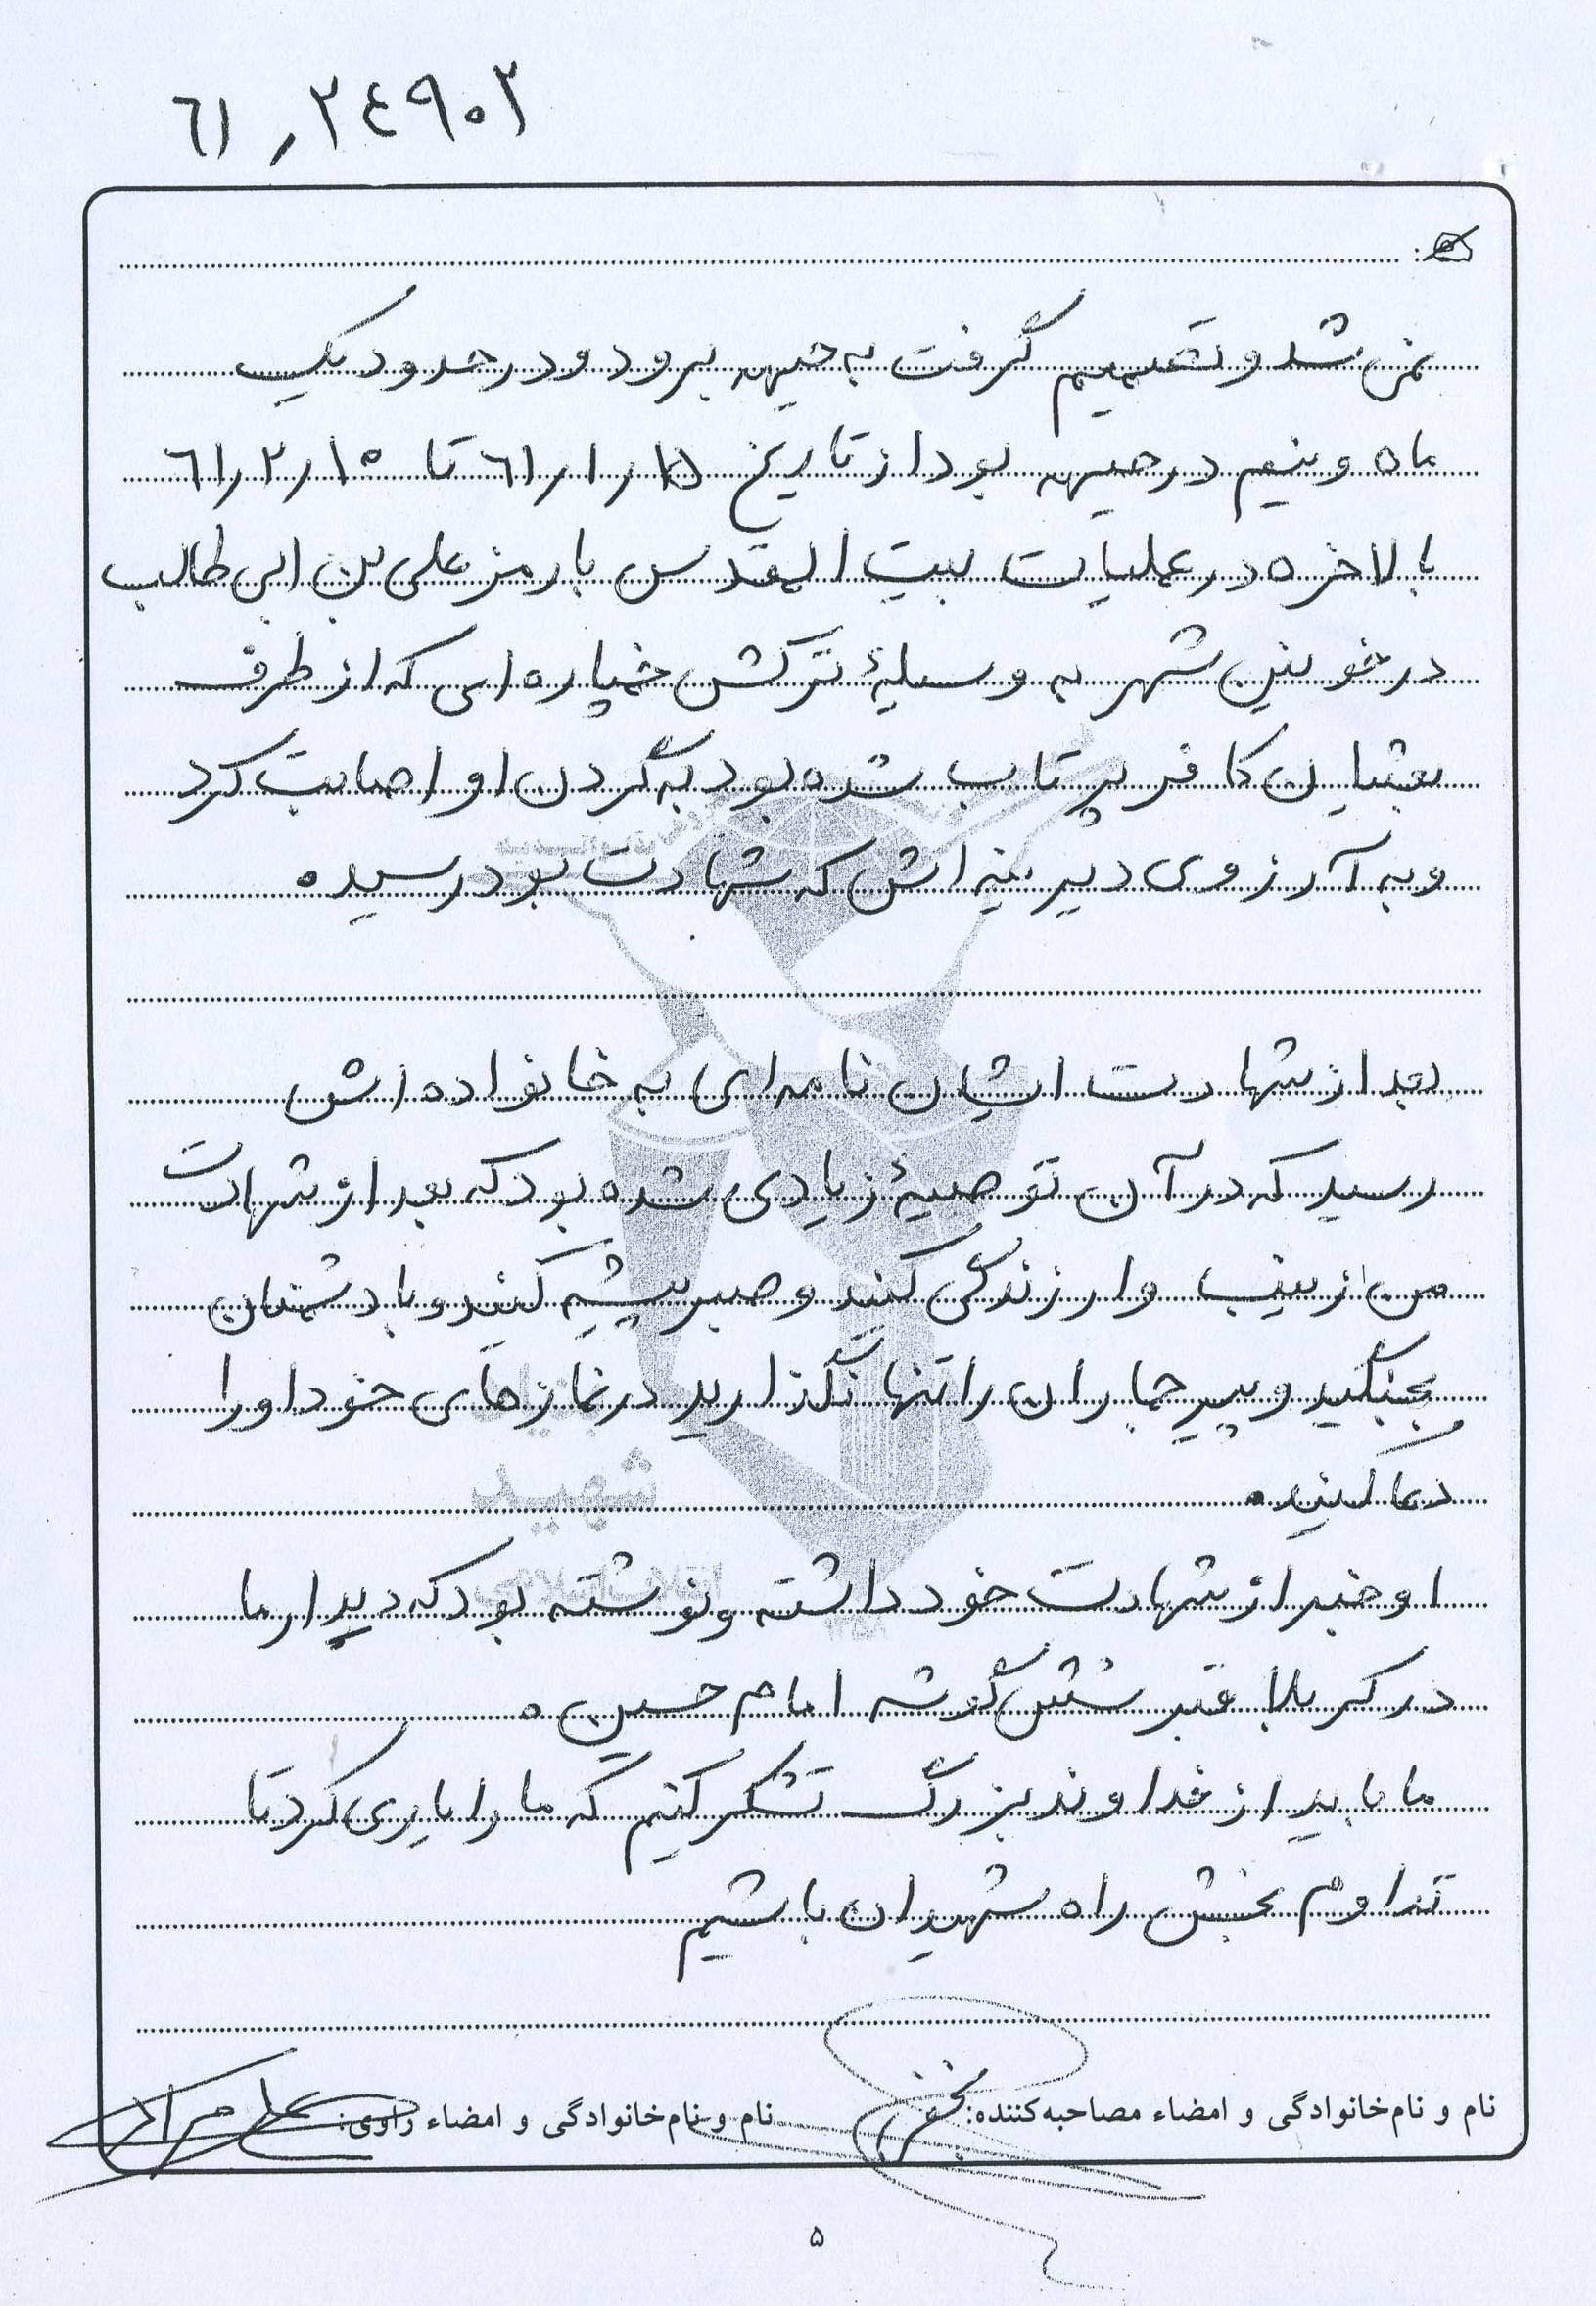 ٦١٫٢٤٩٠٢
نمی شد و تصمیم گرفت به جبهه برود و در حدود یک
ماه و نیم در جبهه بود از تاریخ ١٥ر١ر٦١ تا ١٥ر٢ر٦١
بالاخره در عملیات بیت المقدس با رمز علی بن ابی طالب
در خونین شهر به وسیلۀ ترکش خمپاره ای که از طرف
بعثیان کافر پرتاب شده بود به گردن او اصابت کرد
و به آرزوی دیرینه اش که شهادت بود رسید.
بعد از شهادت ایشان نامه ای به خانواده اش
رسید که در آن توصیۀ زیادی شده بود که بعد از شهادت
من زینب وار زندگی کنید و صبر پیشه کنید و با دشمنان
بجنگید و پیر جماران را تنها نگذارید در نمازهای خود او را
دعا کنید.
او خبر از شهادت خود داشته و نوشته بود که دیدار ما
در کربلا قبر شش گوشه امام حسین.
ما باید از خداوند بزرگ تشکر کنیم که ما را یاری کرد تا
تداوم بخش راه شهیدان باشیم
نام و نام‌خانوادگی و امضاء مصاحبه‌کننده: نام و نام‌خانوادگی و امضاء راوی:
۵
شهید
انقلاب اسلامی